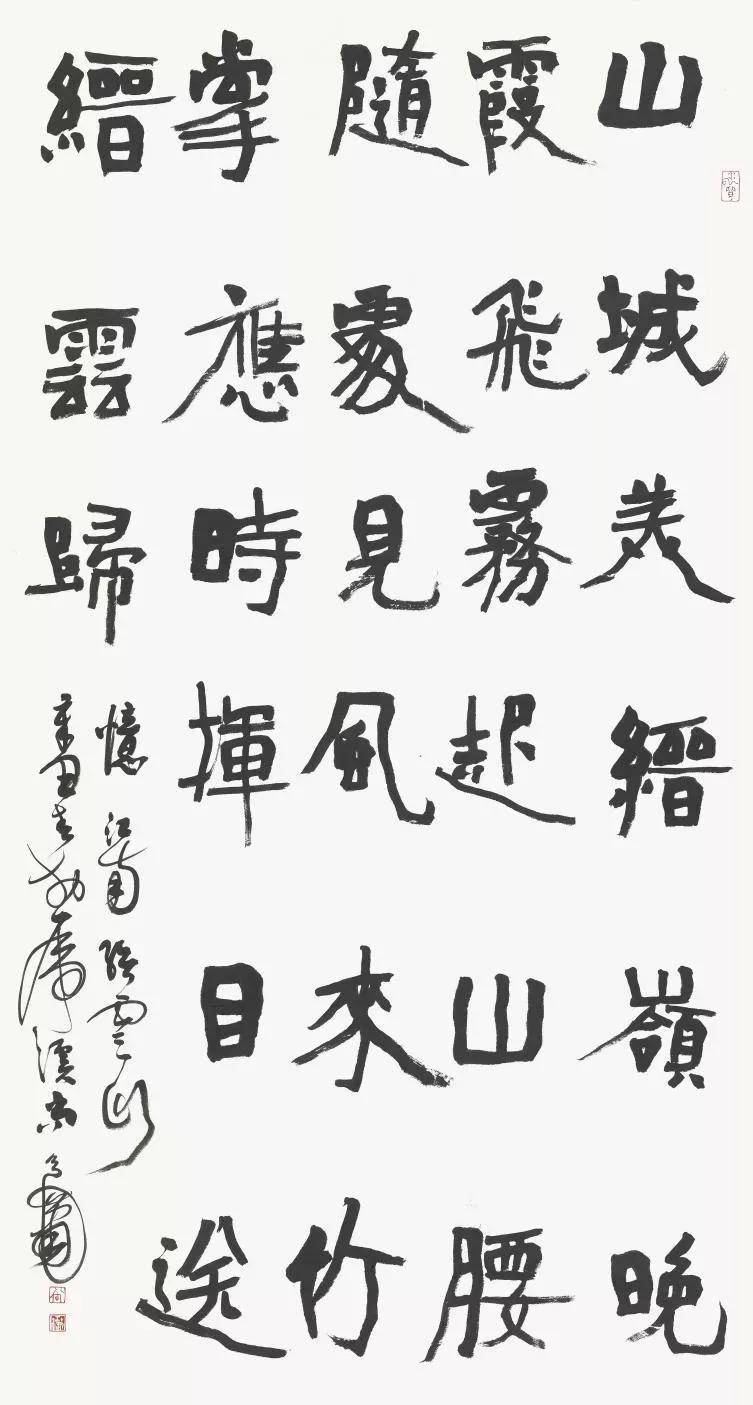 山城美縉嶺晚
霞飛霧起山腰
隨處見風來竹
掌應時揮目送
縉雲歸
憶江南縉雲山
辛丑虎溪